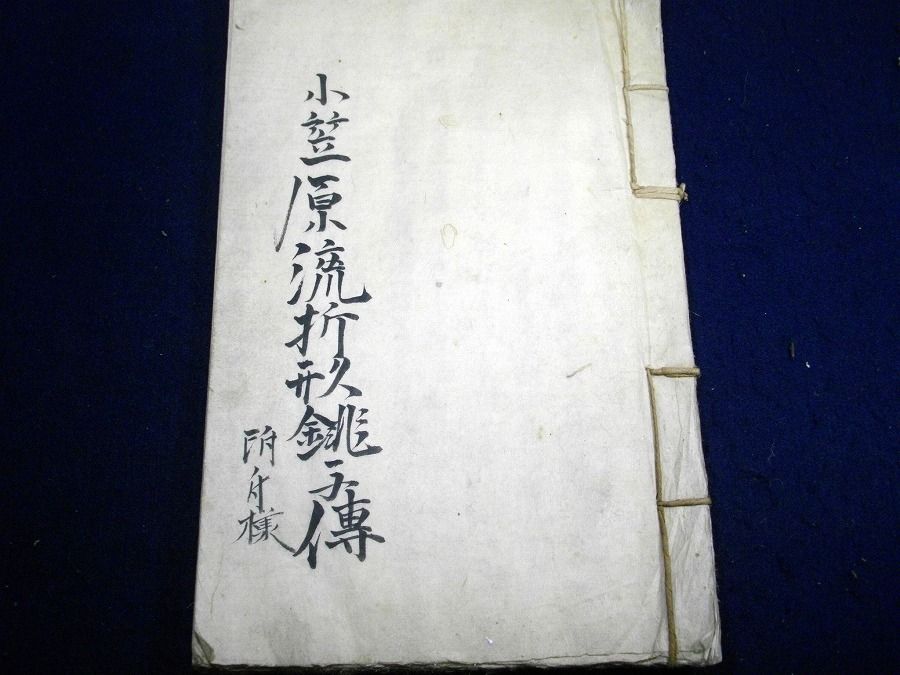 小笠原流折形銚子傳
附舟様